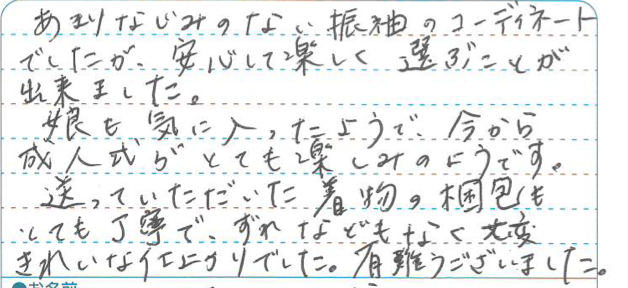 あまりなじみのない振袖のコーディネート
でしたが、安心して楽しく選ぶことが
出来ました。
娘も気に入ったようで、今から
成人式がとても楽しみのようです。
送っていただいた着物の梱包も
とても丁寧で、ずれなどもなく大変
きれいな仕上りでした。有難うございました。
●お名前